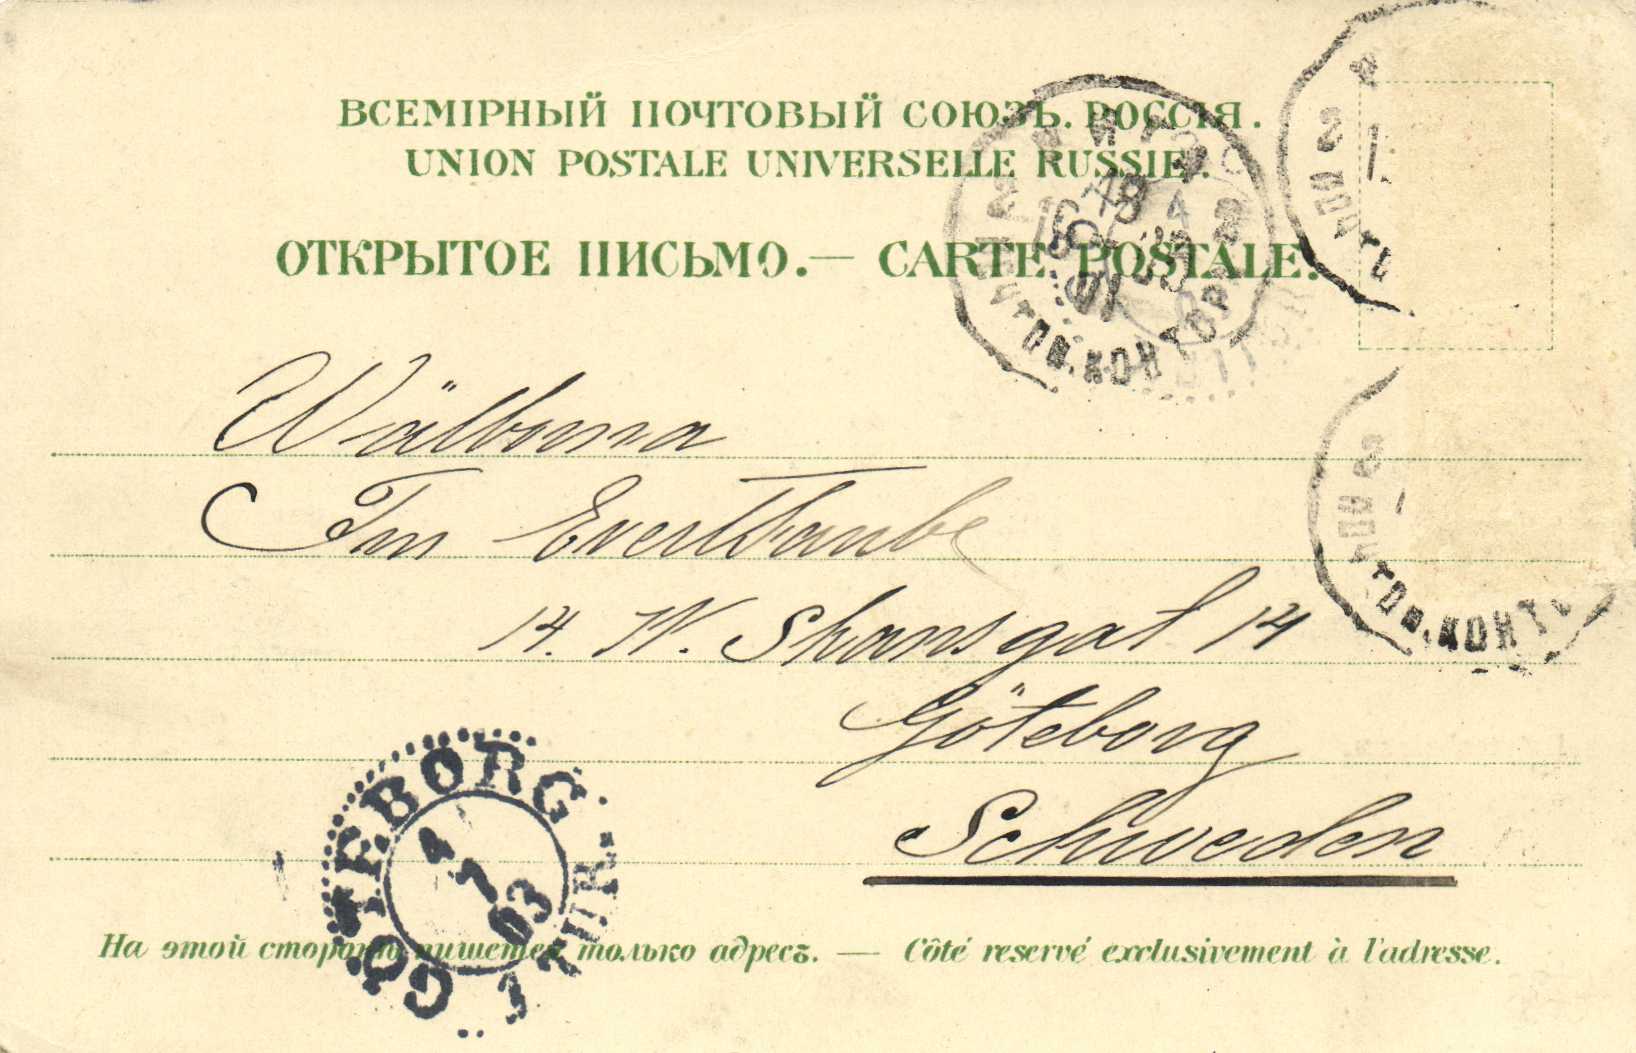 ВСЕМІРНЫЙ ПОЧТОВЫЙ СОЮЗЪ. РОССІЯ.
UNION POSTALE UNIVERSELLE RUSSIE.
ОТКРЫТОЕ ПИСЬМО.— CARTE POSTALE.
Wälborna
Evert Taube
14. N. Skansgat 14
Göteborg
Schweden
GÖTEBORG
4 7 03
1 TUR.
ПОЧТОВ. КОНТОРА
ПОЧТОВ. КОНТ
На этой сторонѣ пишется только адресъ. — Côté reservé exclusivement à l'adresse.